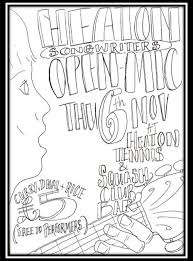 HEATON
SONGWRITERS
OPEN MIC
THU 6th NOV
AT
HEATON
TENNIS
&
SQUASH
CLUB
CURRY, DHAL + RICE
£5
(FREE TO PERFORMERS)